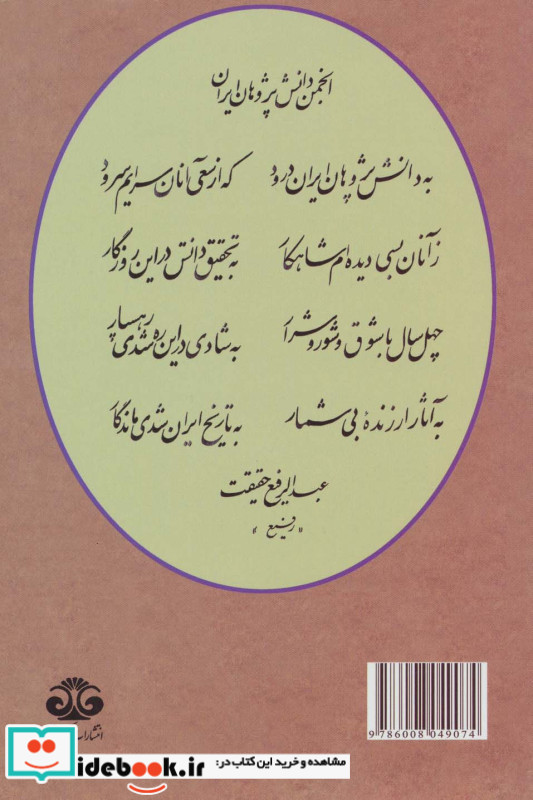 انجمن دانش پژوهان ایران
به دانش پژوهان ایران درود که از سعی آنان سرایم سرود
ز آنان بسی دیده ام شاهکار به تحقیق دانش در این روزگار
چهل سال با شوق و شور و شرار به شادی در این ره شدی رهسپار
به آثار ارزندهٔ بی شمار به تاریخ ایران شدی ماندگار
عبدالرفیع حقیقت
«رفیع»
انتشارات
9 786008 049074
idebook.ir
مشاهده و خرید این کتاب در: